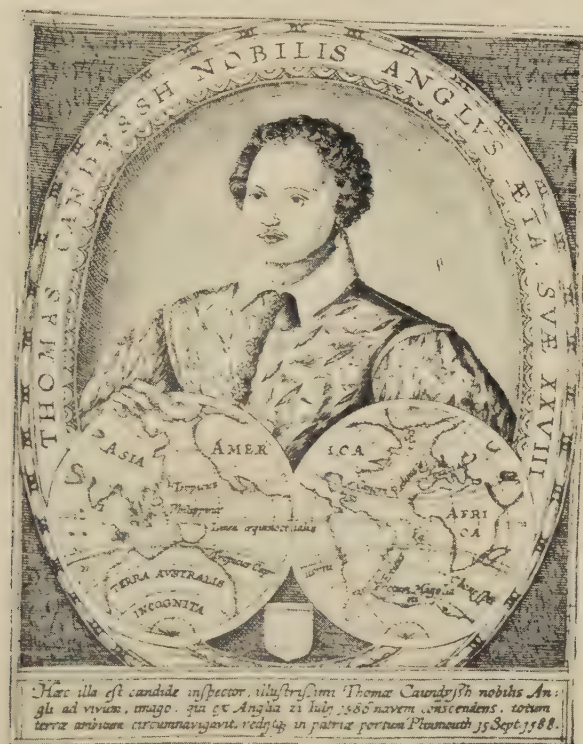 THOMAS CANDYSSH NOBILIS ANGLVS ÆTA. SVÆ XXVIII
ASIA
AMER
ICA
AFRI
CA
Tropicus
Philippinæ
Linea æquinoctialis
Tropicus Cap
TERRA AVSTRALIS
INCOGNITA
Fretum Magella
ni
Hæc illa est candide inspector, illustrissimi Thomæ Caundyssh nobilis An:
gli ad vivum, imago. qui ex Anglia 21 Iuly 1586 navem conscendens, totum
terræ ambitum circumnavigavit, rediitq; in patriæ portum Plimmouth 15 Sept. 1588.